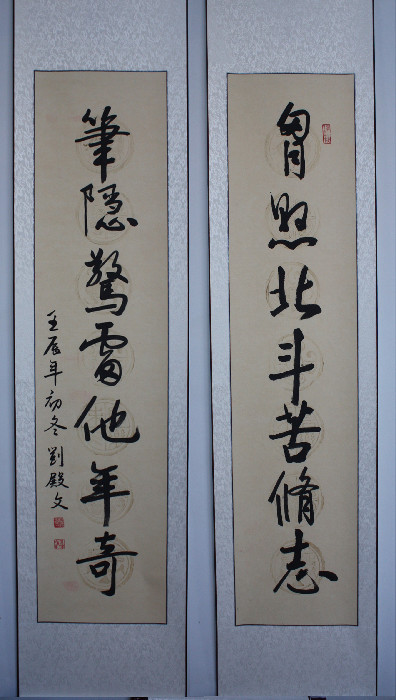 胷照北斗苦脩志
筆隐驚雷他年奇
壬辰年初冬 劉殿文